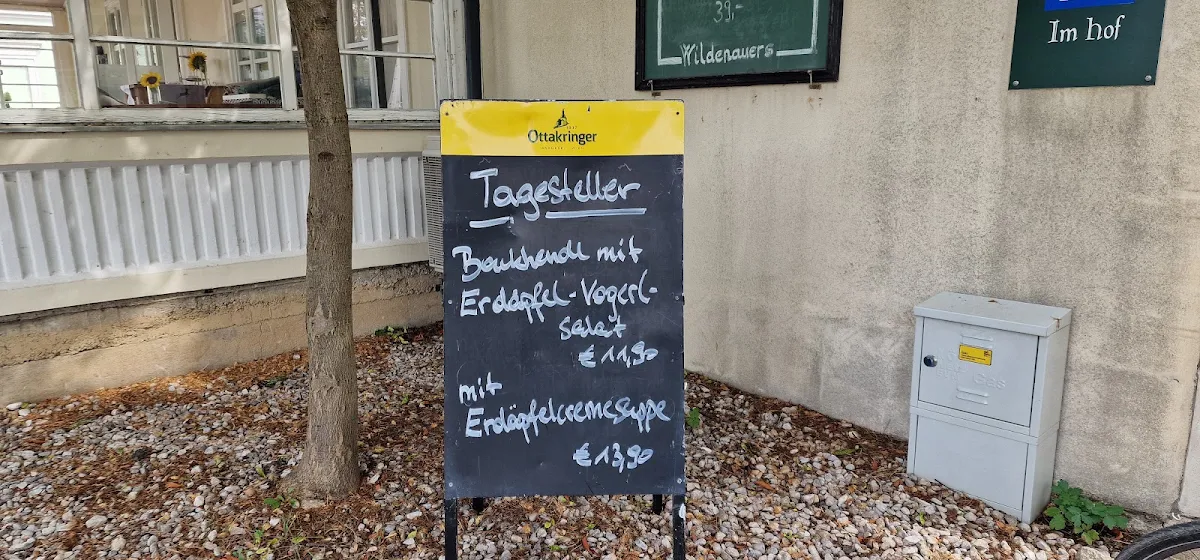 39,-
Wildenauers
Im hof
Ottakringer
Tagesteller
Backhendl mit
Erdäpfel-Vogerl-
salat
€ 11,90
mit
Erdäpfelcremesuppe
€ 13,90